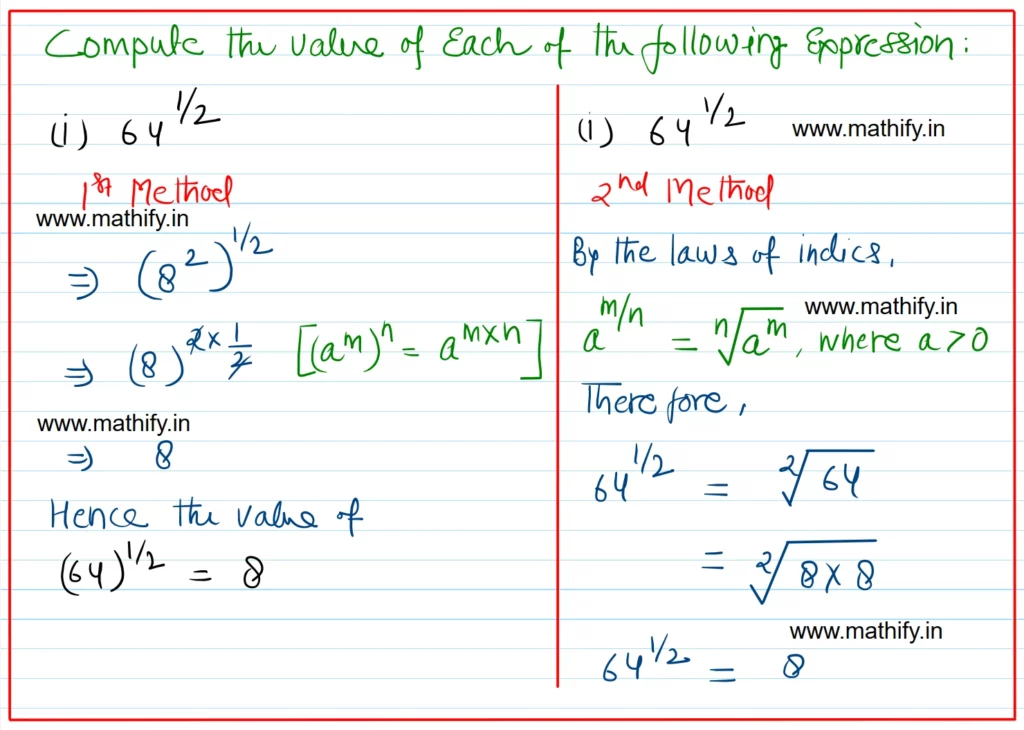 Compute the value of Each of the following Expression:
(i) 64^1/2
1st Method
www.mathify.in
⇒ (8^2)^1/2
⇒ (8)^2×1/2 [(a^m)^n = a^m×n]
www.mathify.in
⇒ 8
Hence the value of
(64)^1/2 = 8
(i) 64^1/2 www.mathify.in
2nd Method
By the laws of indics,
www.mathify.in
a^m/n = ⁿ√a^m, where a>0
Therefore,
64^1/2 = ²√64
= ²√8×8
www.mathify.in
64^1/2 = 8